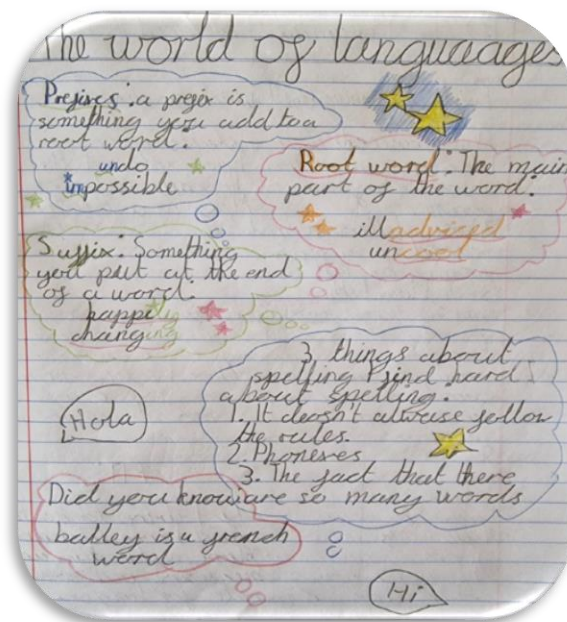 The world of languages
Prefixes: a prefix is
something you add to a
root word.
undo
impossible
Root word: The main
part of the word.
illadviced
uncool
Suffix: Something
you put at the end
of a word.
happily
changing
3 things about
spelling I find hard
about spelling.
1. It doesn't allwase follow
the rules.
2. Phoneves
3. The fact that there
are so many words
Hola
Did you know
balley is a french
word
Hi